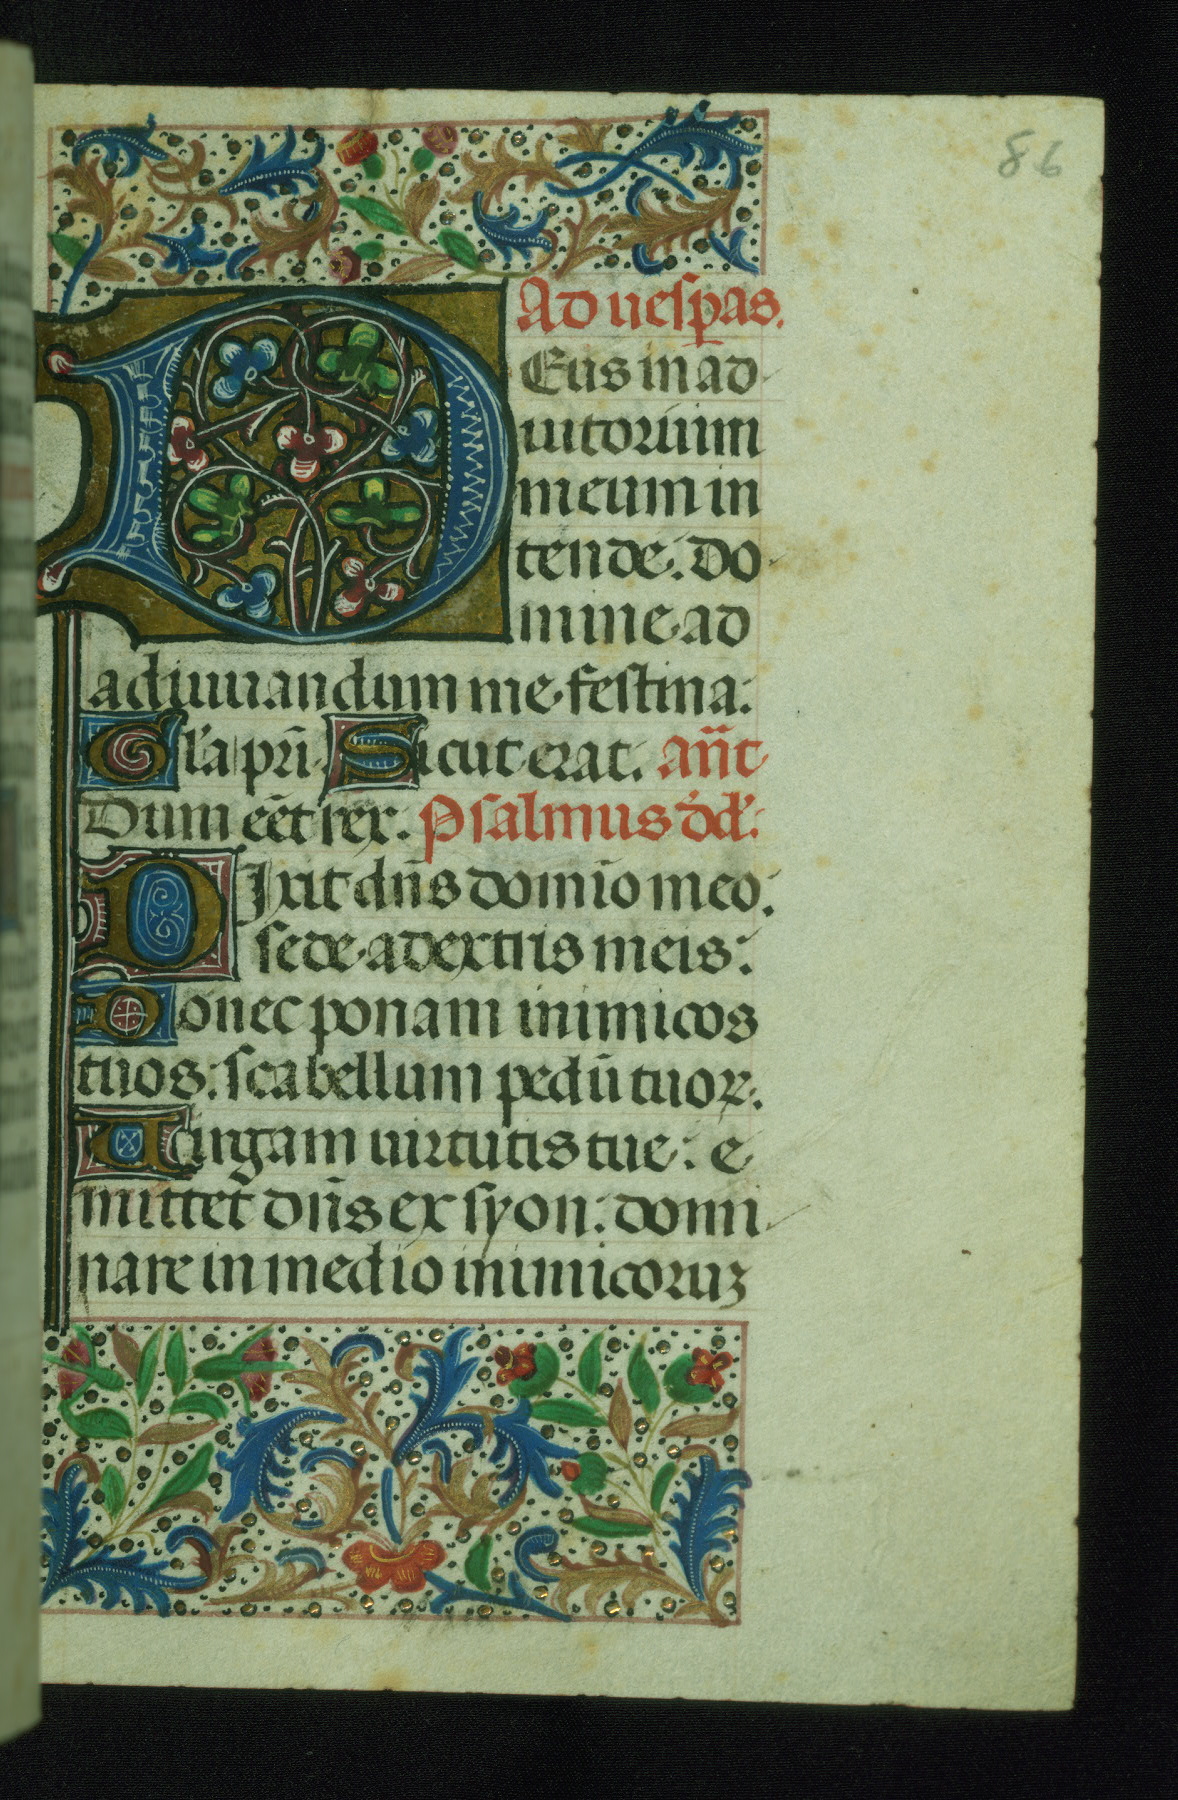 86
Ad uesp̱as.
DEus in ad
iutorium
meum in
tende. Do
mine ad
adiuuandum me festina:
Gl'a pr̄i. Sicut erat. An̄t
Dum eēt rex. Psalmus d'd':
DIxit dn̄s domīo meo:
sede a dextris meis:
Donec ponam inimicos
tuos: scabellum pedū tuoꝝ.
Uirgam uirtutis tue: e
mittet dn̄s ex syon: domi
nare in medio inimicoruꝫ